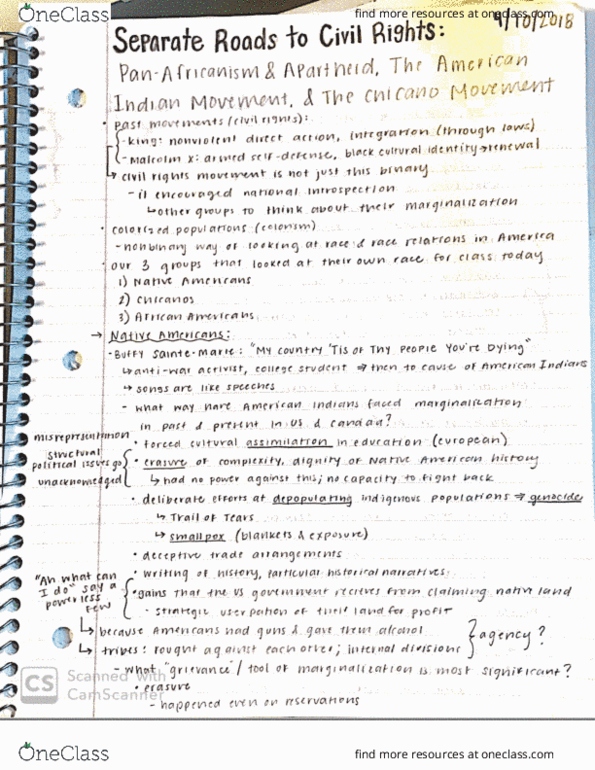 OneClass
find more resources at oneclass.com
4/10/2018
Separate Roads to Civil Rights:
Pan-Africanism & Apartheid, The American
Indian Movement, & The Chicano Movement
• past movements (civil rights):
- king: nonviolent direct action, integration (through laws)
- Malcolm X: armed self-defense, black cultural identity → renewal
↳ civil rights movement is not just this binary
- it encouraged national introspection
↳ other groups to think about their marginalization
• colorized populations (colorism)
- nonbinary way of looking at race & race relations in America
• our 3 groups that looked at their own race for class today
1) Native Americans
2) Chicanos
3) African Americans
→ Native Americans:
• Buffy Sainte-Marie: "My country 'Tis of Thy People You're Dying"
↳ anti-war activist, college student ⇒ then to cause of American Indians
↳ songs are like speeches
- what way have American Indians faced marginalization
in past & present in US & candian?
misrepresentation
structural
political issues go
unacknowledged
• forced cultural assimilation in education (european)
• erasure of complexity, dignity of Native American history
↳ had no power against this; no capacity to fight back
• deliberate efforts at depopulating indigenous populations ⇒ genocide
↳ Trail of Tears
↳ smallpox (blankets & exposure)
• deceptive trade arrangements
"Ah what can
I do" say a
powerless
few
• writing of history, particular historical narratives
• gains that the US government recieves from claiming native land
- strategic userpation of their land for profit
↳ because Americans had guns & gave them alcohol
↳ tribes: fought against each other; internal divisions
} agency?
- what "grievance"/ tool of marginalization is most significant?
• erasure
- happened even on reservations
CS Scanned with
CamScanner
OneClass
find more resources at oneclass.com